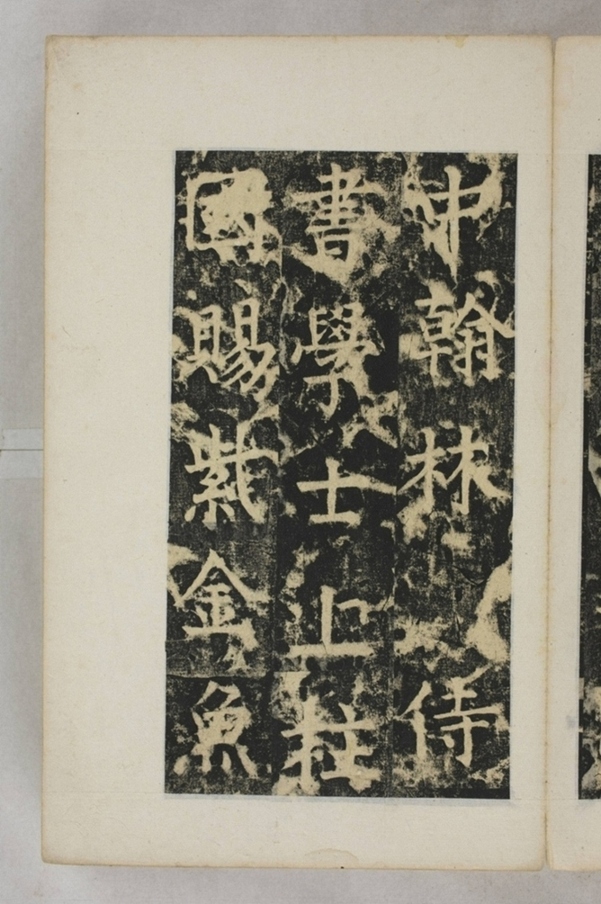 中翰林侍
書學士上柱
國賜紫金魚